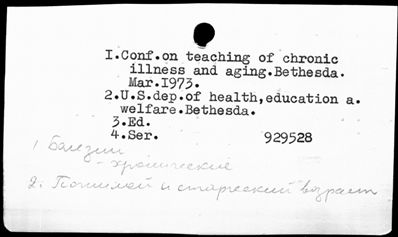 I.Conf.on teaching of chronic
illness and aging.Bethesda.
Mar.I973.
2.U.S.dep.of health,education a.
welfare.Bethesda.
3.Ed.
4.Ser. 929528
1 Болезни
- хронические
2. Пожилой и старческий возраст